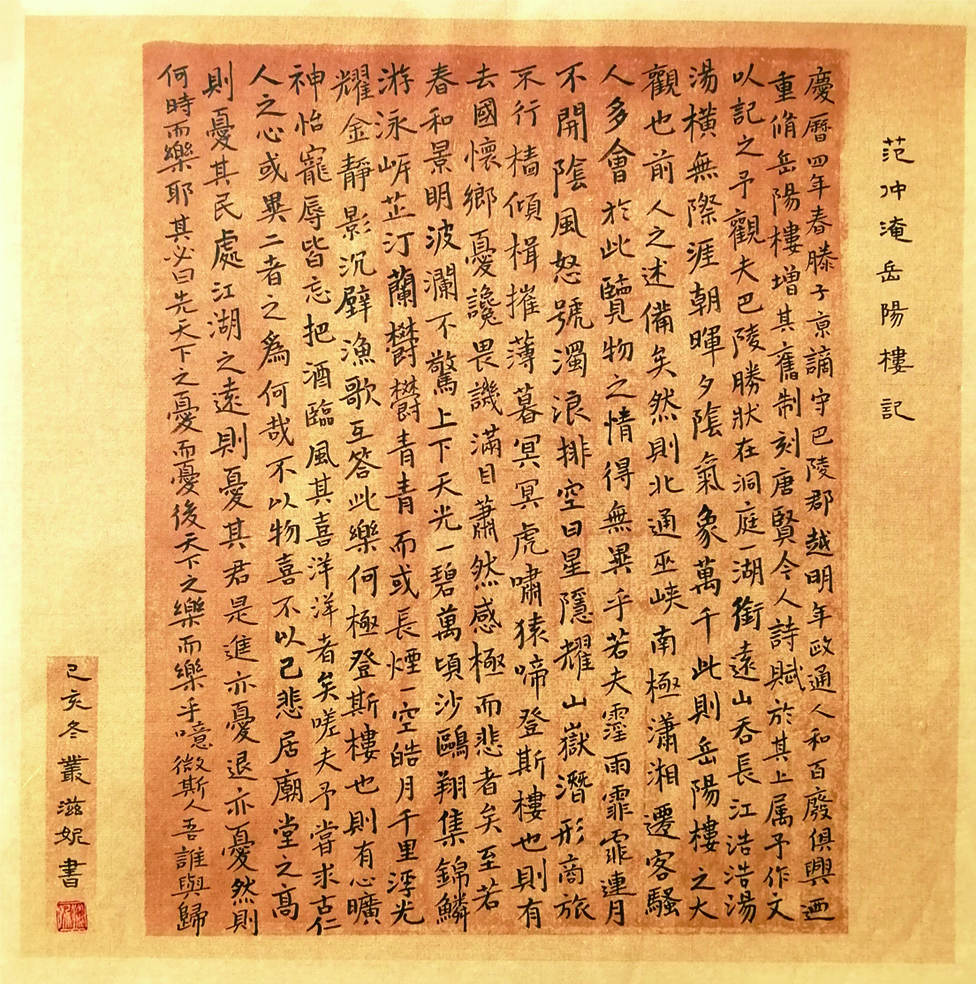 范仲淹岳陽樓記
慶曆四年春滕子京謫守巴陵郡越明年政通人和百廢俱興迺
重脩岳陽樓增其舊制刻唐賢今人詩賦於其上属予作文
以記之予觀夫巴陵勝狀在洞庭一湖銜遠山吞長江浩浩湯
湯橫無際涯朝暉夕陰氣象萬千此則岳陽樓之大
觀也前人之述備矣然則北通巫峽南極瀟湘遷客騷
人多會於此覽物之情得無異乎若夫霪雨霏霏連月
不開陰風怒號濁浪排空日星隱耀山嶽潛形商旅
不行檣傾楫摧薄暮冥冥虎嘯猿啼登斯樓也則有
去國懷鄉憂讒畏譏滿目蕭然感極而悲者矣至若
春和景明波瀾不驚上下天光一碧萬頃沙鷗翔集錦鱗
游泳岸芷汀蘭欝欝青青而或長煙一空皓月千里浮光
耀金靜影沉璧漁歌互答此樂何極登斯樓也則有心曠
神怡寵辱皆忘把酒臨風其喜洋洋者矣嗟夫予嘗求古仁
人之心或異二者之為何哉不以物喜不以己悲居廟堂之高
則憂其民處江湖之遠則憂其君是進亦憂退亦憂然則
何時而樂耶其必曰先天下之憂而憂後天下之樂而樂乎噫微斯人吾誰與歸
己亥冬叢滋妮書